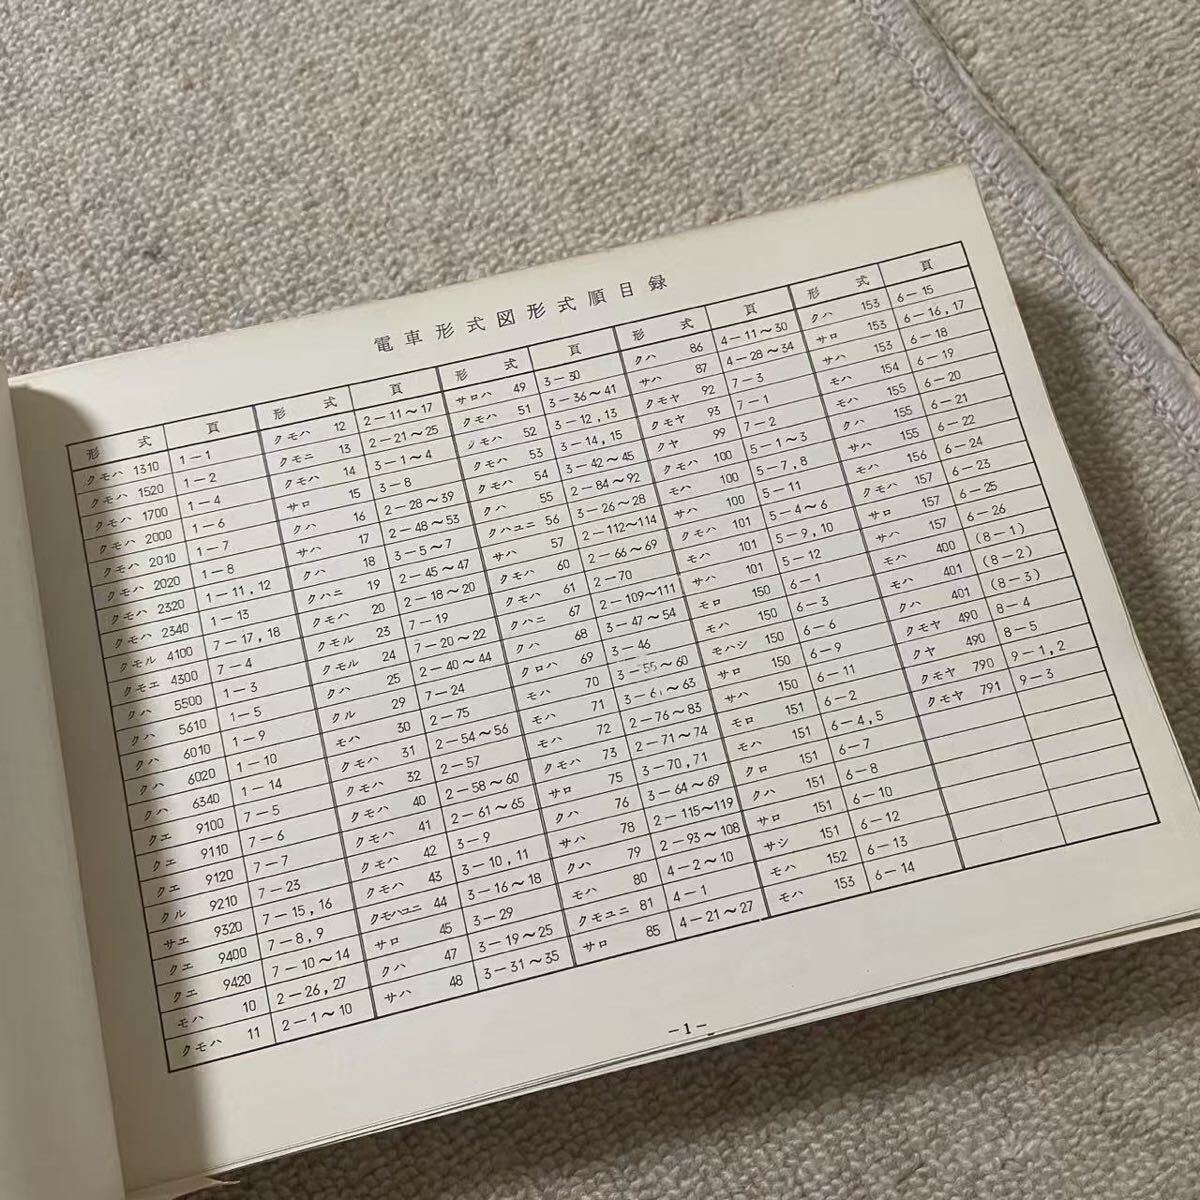 電車形式図形式順目録
形式 頁
クモハ 1310 1－1
クモハ 1520 1－2
クモハ 1700 1－4
クモハ 2000 1－6
クモハ 2010 1－7
クモハ 2020 1－8
クモハ 2320 1－11,12
クモハ 2340 1－13
クモル 4100 7－17,18
クモエ 4300 7－4
クハ 5500 1－3
クハ 5610 1－5
クハ 6010 1－9
クハ 6020 1－10
クハ 6340 1－14
クエ 9100 7－5
クエ 9110 7－6
クエ 9120 7－7
クル 9210 7－23
サエ 9320 7－15,16
クエ 9400 7－8,9
クエ 9420 7－10～14
モハ 10 2－26,27
クモハ 11 2－1～10
形式 頁
クモハ 12 2－11～17
クモニ 13 2－21～25
クモハ 14 3－1～4
サロ 15 3－8
クハ 16 2－28～39
サハ 17 2－48～53
クハ 18 3－5～7
クハニ 19 2－45～47
クモハ 20 2－18～20
クモル 23 7－19
クモル 24 7－20～22
クハ 25 2－40～44
クル 29 7－24
モハ 30 2－75
クモハ 31 2－54～56
クモハ 32 2－57
クモハ 40 2－58～60
クモハ 41 2－61～65
クモハ 42 3－9
クモハ 43 3－10,11
クモハユニ 44 3－16～18
サロ 45 3－29
クハ 47 3－19～25
サハ 48 3－31～35
形式 頁
サロハ 49 3－30
クモハ 51 3－36～41
クモハ 52 3－12,13
クモハ 53 3－14,15
クモハ 54 3－42～45
クハ 55 2－84～92
クハユニ 56 3－26～28
サハ 57 2－112～114
クモハ 60 2－66～69
クモハ 61 2－70
クハニ 67 2－109～111
クハ 68 3－47～54
クロハ 69 3－46
モハ 70 3－55～60
モハ 71 3－61～63
モハ 72 2－76～83
クモハ 73 2－71～74
サロ 75 3－70,71
クハ 76 3－64～69
サハ 78 2－115～119
クハ 79 2－93～108
モハ 80 4－2～10
クモユニ 81 4－1
サロ 85 4－21～27
形式 頁
クハ 86 4－11～30
サハ 87 4－28～34
クモヤ 92 7－3
クモヤ 93 7－1
クヤ 99 7－2
クモハ 100 5－1～3
モハ 100 5－7,8
サハ 100 5－11
クモハ 101 5－4～6
モハ 101 5－9,10
サハ 101 5－12
モロ 150 6－1
モハ 150 6－3
モハシ 150 6－6
サロ 150 6－9
サハ 150 6－11
モロ 151 6－2
モハ 151 6－4,5
クロ 151 6－7
クハ 151 6－8
サロ 151 6－10
サシ 151 6－12
モハ 152 6－13
モハ 153 6－14
形式 頁
クハ 153 6－15
サロ 153 6－16,17
サハ 153 6－18
モハ 154 6－19
モハ 155 6－20
クハ 155 6－21
サハ 155 6－22
モハ 156 6－24
クモハ 157 6－23
サロ 157 6－25
サハ 157 6－26
モハ 400 (8－1)
モハ 401 (8－2)
クハ 401 (8－3)
クモヤ 490 8－4
クヤ 490 8－5
クモヤ 790 9－1,2
クモヤ 791 9－3
－1－